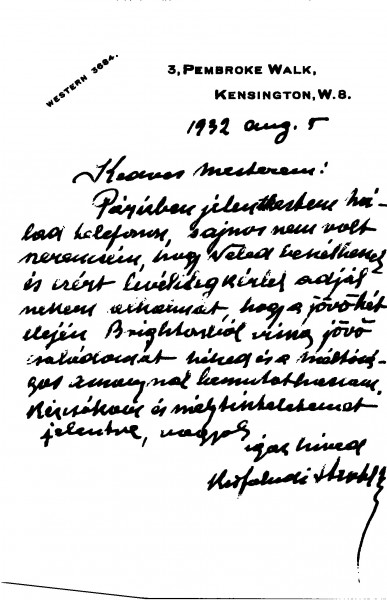 WESTERN 3684.
3, PEMBROKE WALK,
KENSINGTON, W. 8.
1932 aug. 5
Kedves mesterem!
Párisban jelentkeztem ná-
lad telefonon, sajnos nem volt
szerencsém, hogy Veled beszélhessek
és ezért levélileg kérlek adjál
nekem alkalmat, hogy a jövő hét
elején Brightonból vissza jövő
családomat neked és a méltósá-
gos asszonynak bemutathassam.
Kézcsókom és mély tiszteletemet
jelentve, vagyok
igaz híved
Kisfaludi Strobl Zs